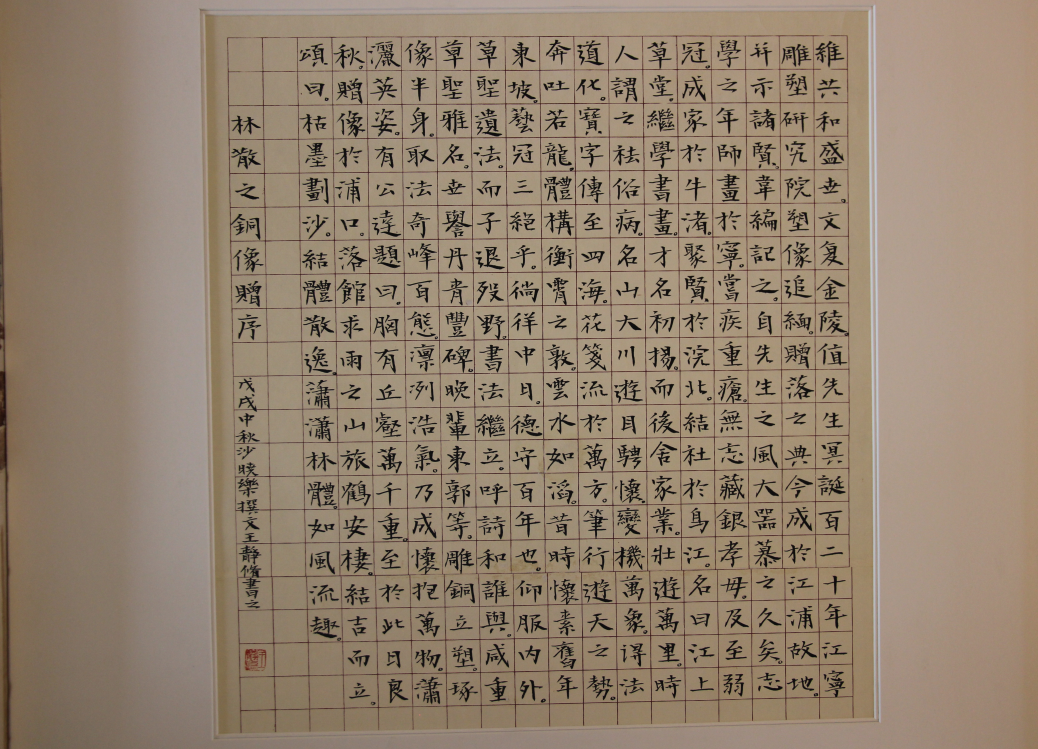 維共和盛世。文复金陵。值先生冥誕百二十年江寧
雕塑研究院塑像追緬。贈落之典今成於江浦故地。
并示諸賢。韋編記之。自先生之風大器慕之久矣。志
學之年師畫於寧。嘗疾重瘡。無志藏銀孝毋。及至弱
冠。成家於牛渚。聚賢於浣北。結社於烏江。名曰江上
草堂。繼學書畫。才名初揚。而後舍家業。壯遊萬里。時
人謂之祛俗病。名山大川遊目騁懷。變機萬象。得法
道化。寶字傳至四海。花箋流於萬方。筆行遊天之勢。
奔吐若龍。體構衡霄之敦。雲水如滔。昔時懷素舊年
東坡。藝冠三絕乎。徜徉中日。德守百年也。仰服內外。
草聖遺法。而子退歿野。書法繼立。呼詩和誰與。咸重
草聖雅名。世譽丹青豐碑。晚輩東郭等。雕銅立塑。琢
像半身。取法奇峰百態。凛冽浩氣。乃成懷抱萬物。瀟
灑英姿。有公逵題曰。胸有丘壑萬千重。至於此日良
秋。贈像於浦口。落館求雨之山旅鶴安棲。結吉而立。
頌曰。枯墨劃沙。結體散逸。瀟瀟林體。如風流趣。
林散之銅像贈序
戊戌中秋沙樂撰文王靜脩書之